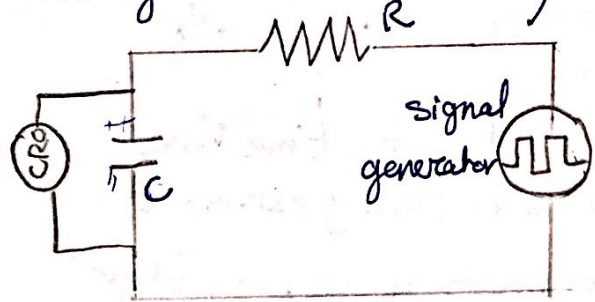 R
signal
generator
CRO
C